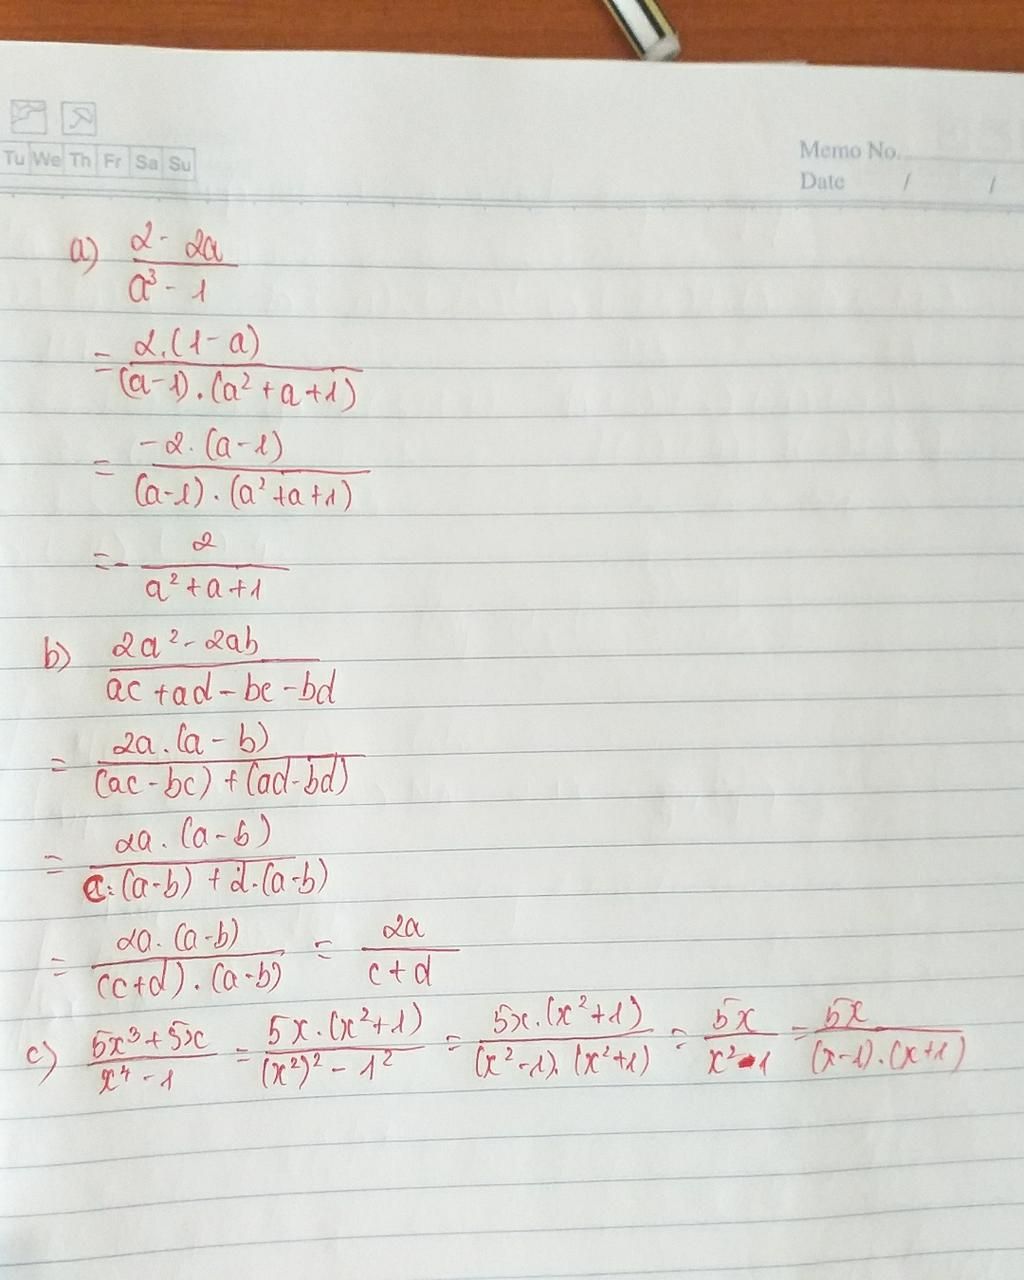 Tu We Th Fr Sa Su
Memo No.
Date / /
a) (2 - 2a)/(a³ - 1)
= (2.(1-a))/((a-1).(a²+a+1))
= (-2.(a-1))/((a-1).(a²+a+1))
= - 2/(a²+a+1)
b) (2a² - 2ab)/(ac+ad-bc-bd)
= (2a.(a-b))/((ac-bc)+(ad-bd))
= (2a.(a-b))/(c.(a-b)+d.(a-b))
= (2a.(a-b))/((c+d).(a-b)) = 2a/(c+d)
c) (5x³+5x)/(x⁴-1) = (5x.(x²+1))/((x²)²-1²) = (5x.(x²+1))/((x²-1).(x²+1)) = 5x/(x²-1) = 5x/((x-1).(x+1))